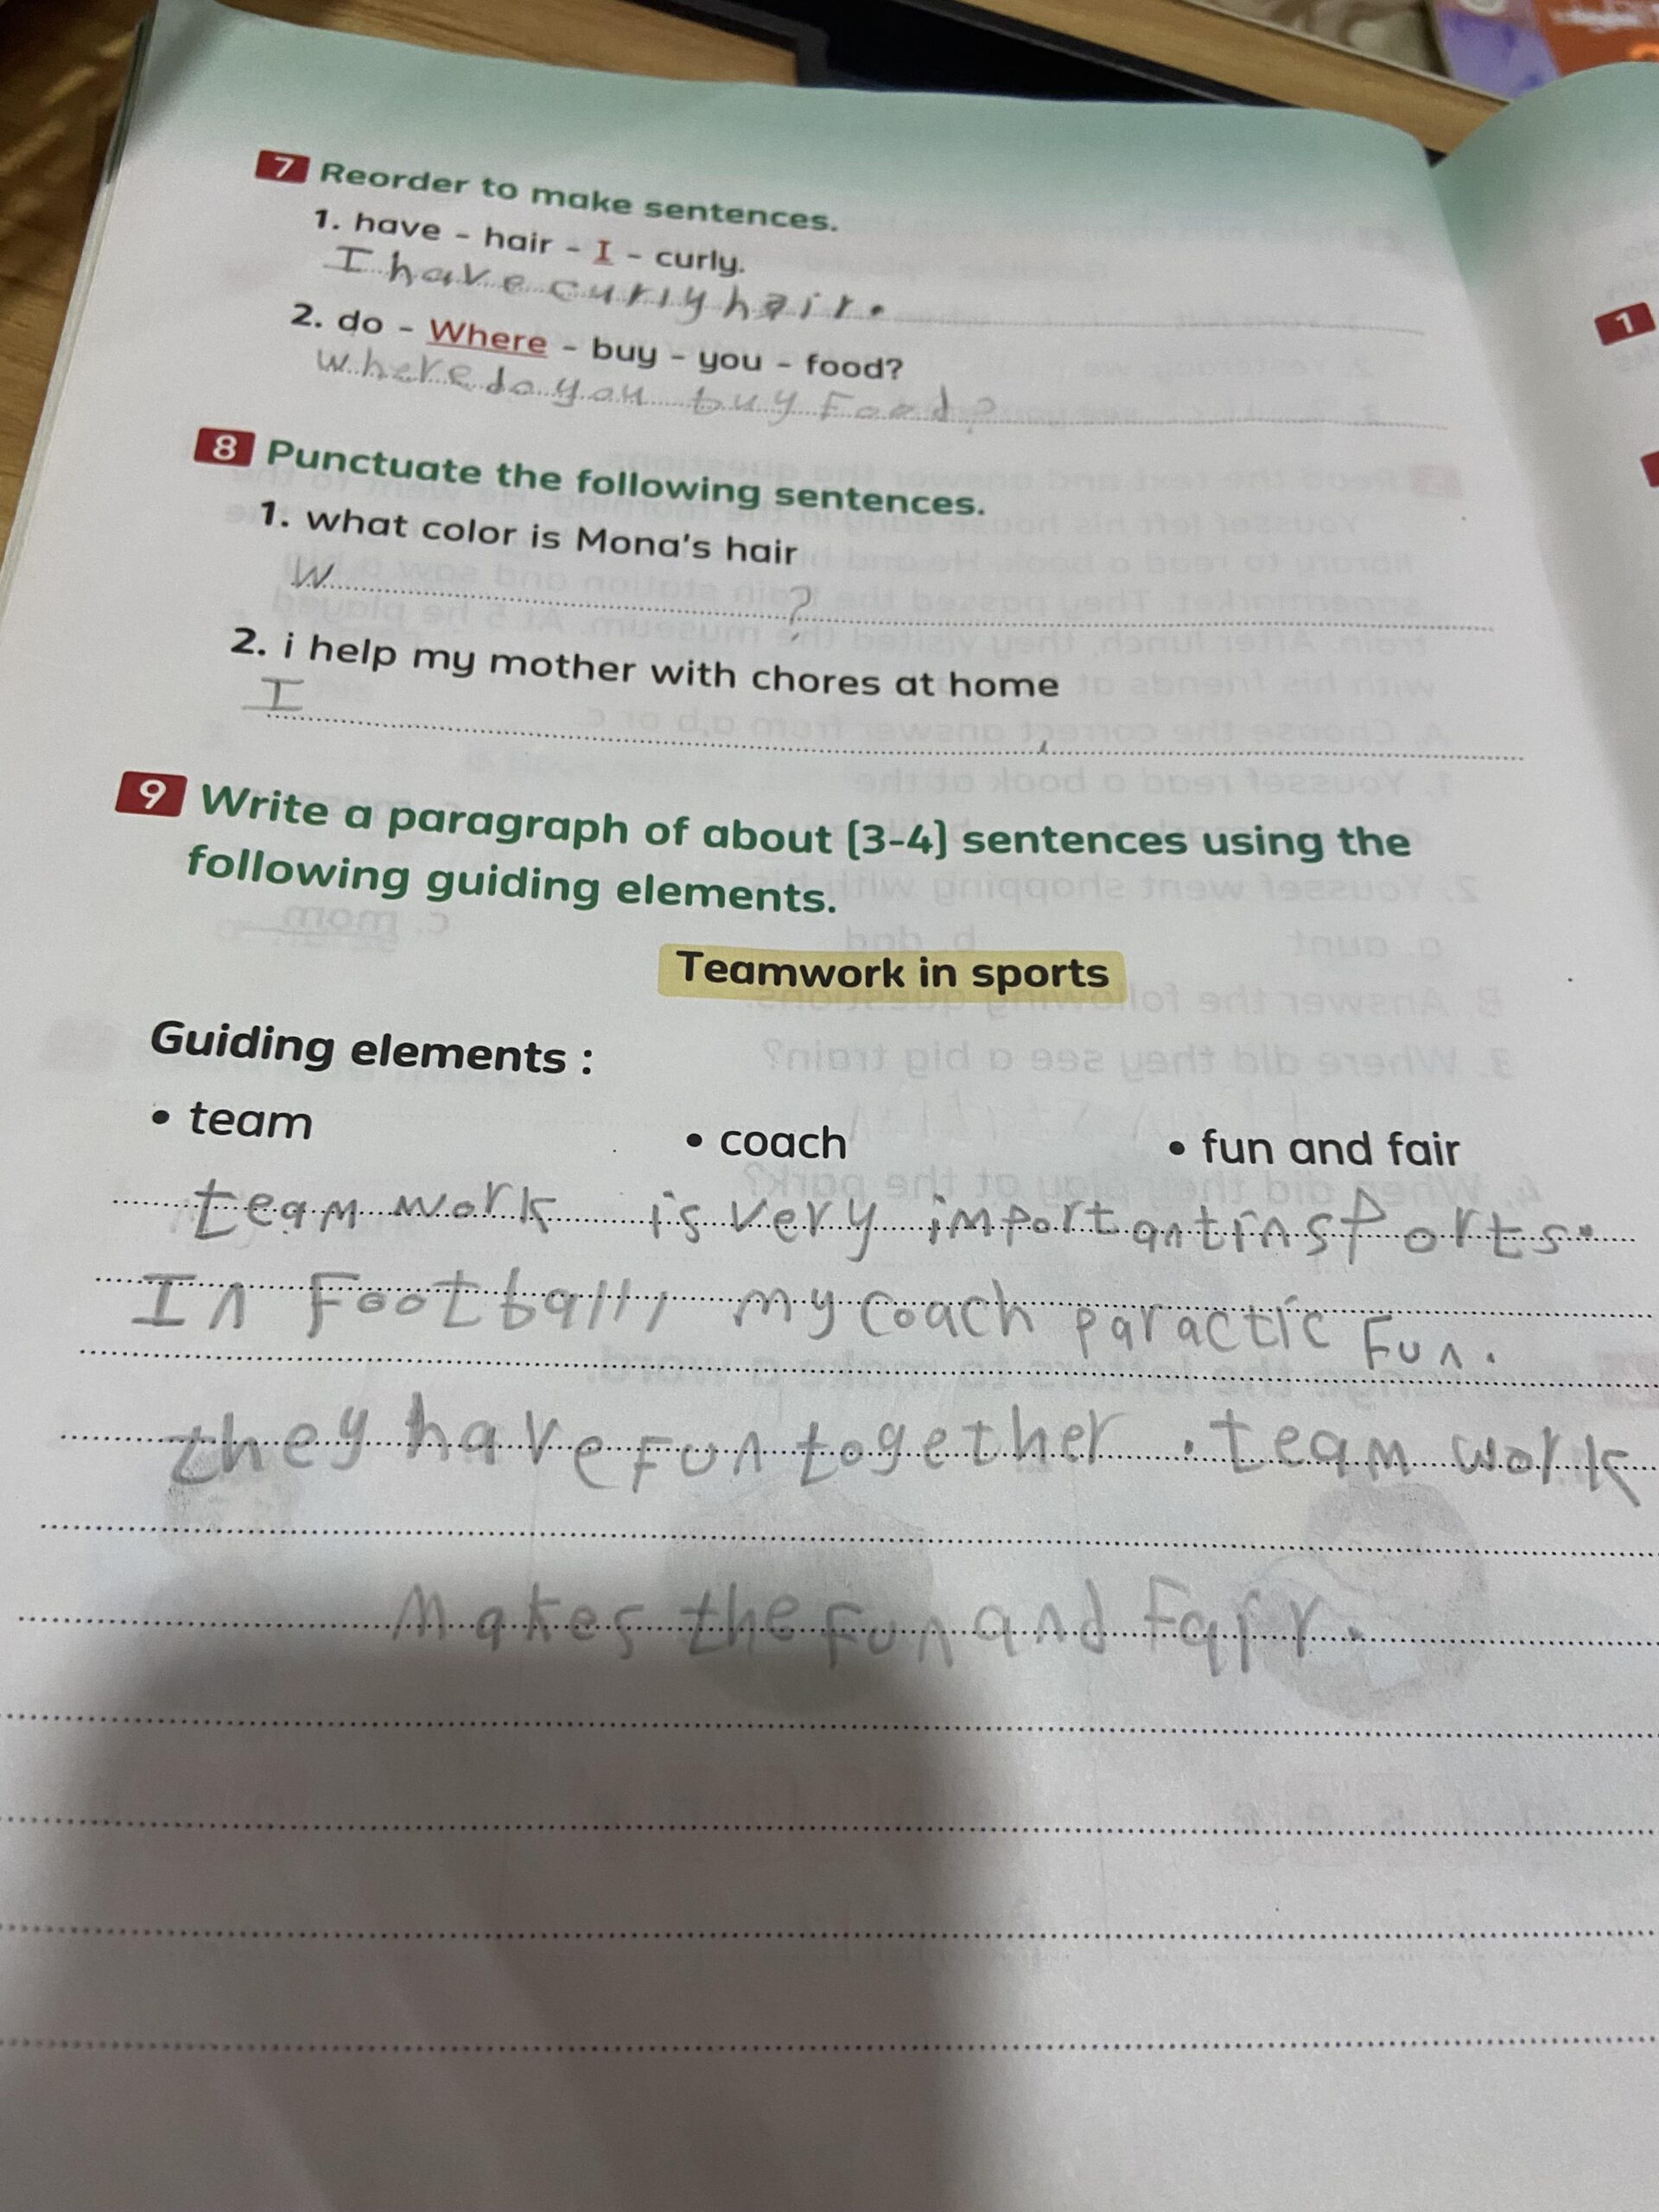 7 Reorder to make sentences.
1. have - hair - I - curly.
I have curly hair.
2. do - Where - buy - you - food?
where do you buy Food?
8 Punctuate the following sentences.
1. what color is Mona's hair
W ?
2. i help my mother with chores at home
I .
9 Write a paragraph of about (3-4) sentences using the
following guiding elements.
Teamwork in sports
Guiding elements :
• team • coach • fun and fair
team work is very important in sports.
In Football, my coach paractic Fun.
they have Fun together . team work
makes the Fun and Fair.
1